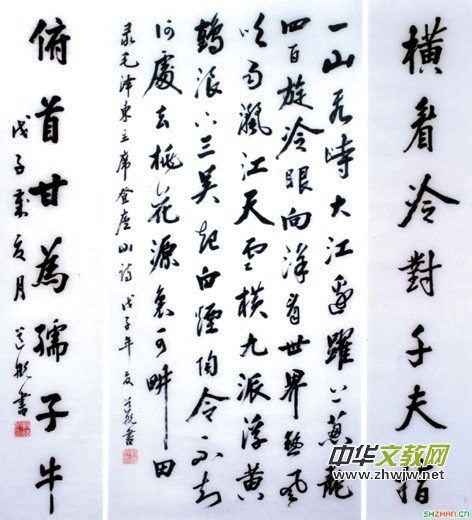 橫看冷對千夫指
一山飛峙大江邊躍上蔥蘢
四百旋冷眼向洋看世界熱風
吹雨灑江天雲橫九派浮黃
鶴浪下三吳起白煙陶令不知
何處去桃花源裏可耕田
录毛泽東主席登廬山詩 戊子年夏 書
俯首甘為孺子牛
戊子歲夏月 書
中华文教网
www.zhwjw.net
SHZHAN.CN